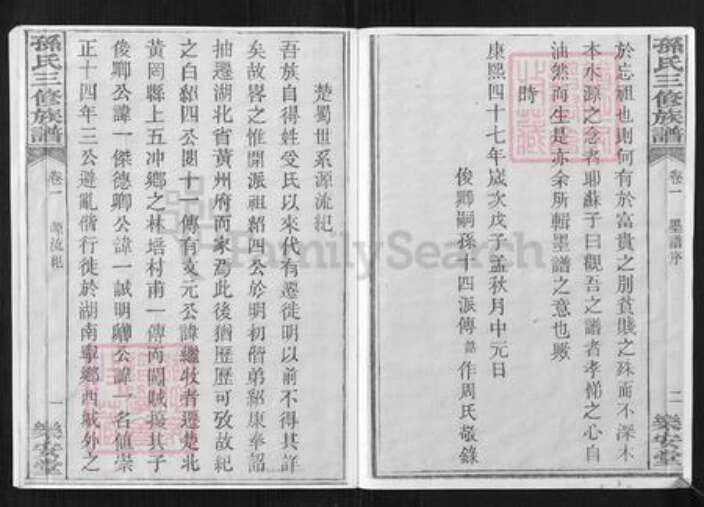 孫氏三修族譜
卷一
墨譜序
二
樂安堂
於忘祖也則何有於富貴之別貧賤之殊而不深木
本水源之念者耶蘇子曰觀吾之譜者孝悌之心自
油然而生是亦余所輯墨譜之意也歟
時
康熙四十七年歲次戊子孟秋月中元日
俊卿嗣孫十四派傳 作周氏敬錄
楚蜀世系源流紀
吾族自得姓受氏以來代有遷徙明以前不得其詳
矣故畧之惟開派祖紹四公於明初偕弟紹康奉詔
抽遷湖北省黃州府而家焉此後猶歷歷可攷故紀
之白紹四公閱十一傳有文元公諱繼牧者遷楚北
黃岡縣上五冲鄉之林培村甫一傳而闖賊擾其子
俊卿公諱一傑德卿公諱一誠明卿公諱一名值崇
正十四年三公避亂偕行徙於湖南寧鄉西城外之
孫氏三修族譜
卷一
源流紀
一
樂安堂
FamilySearch